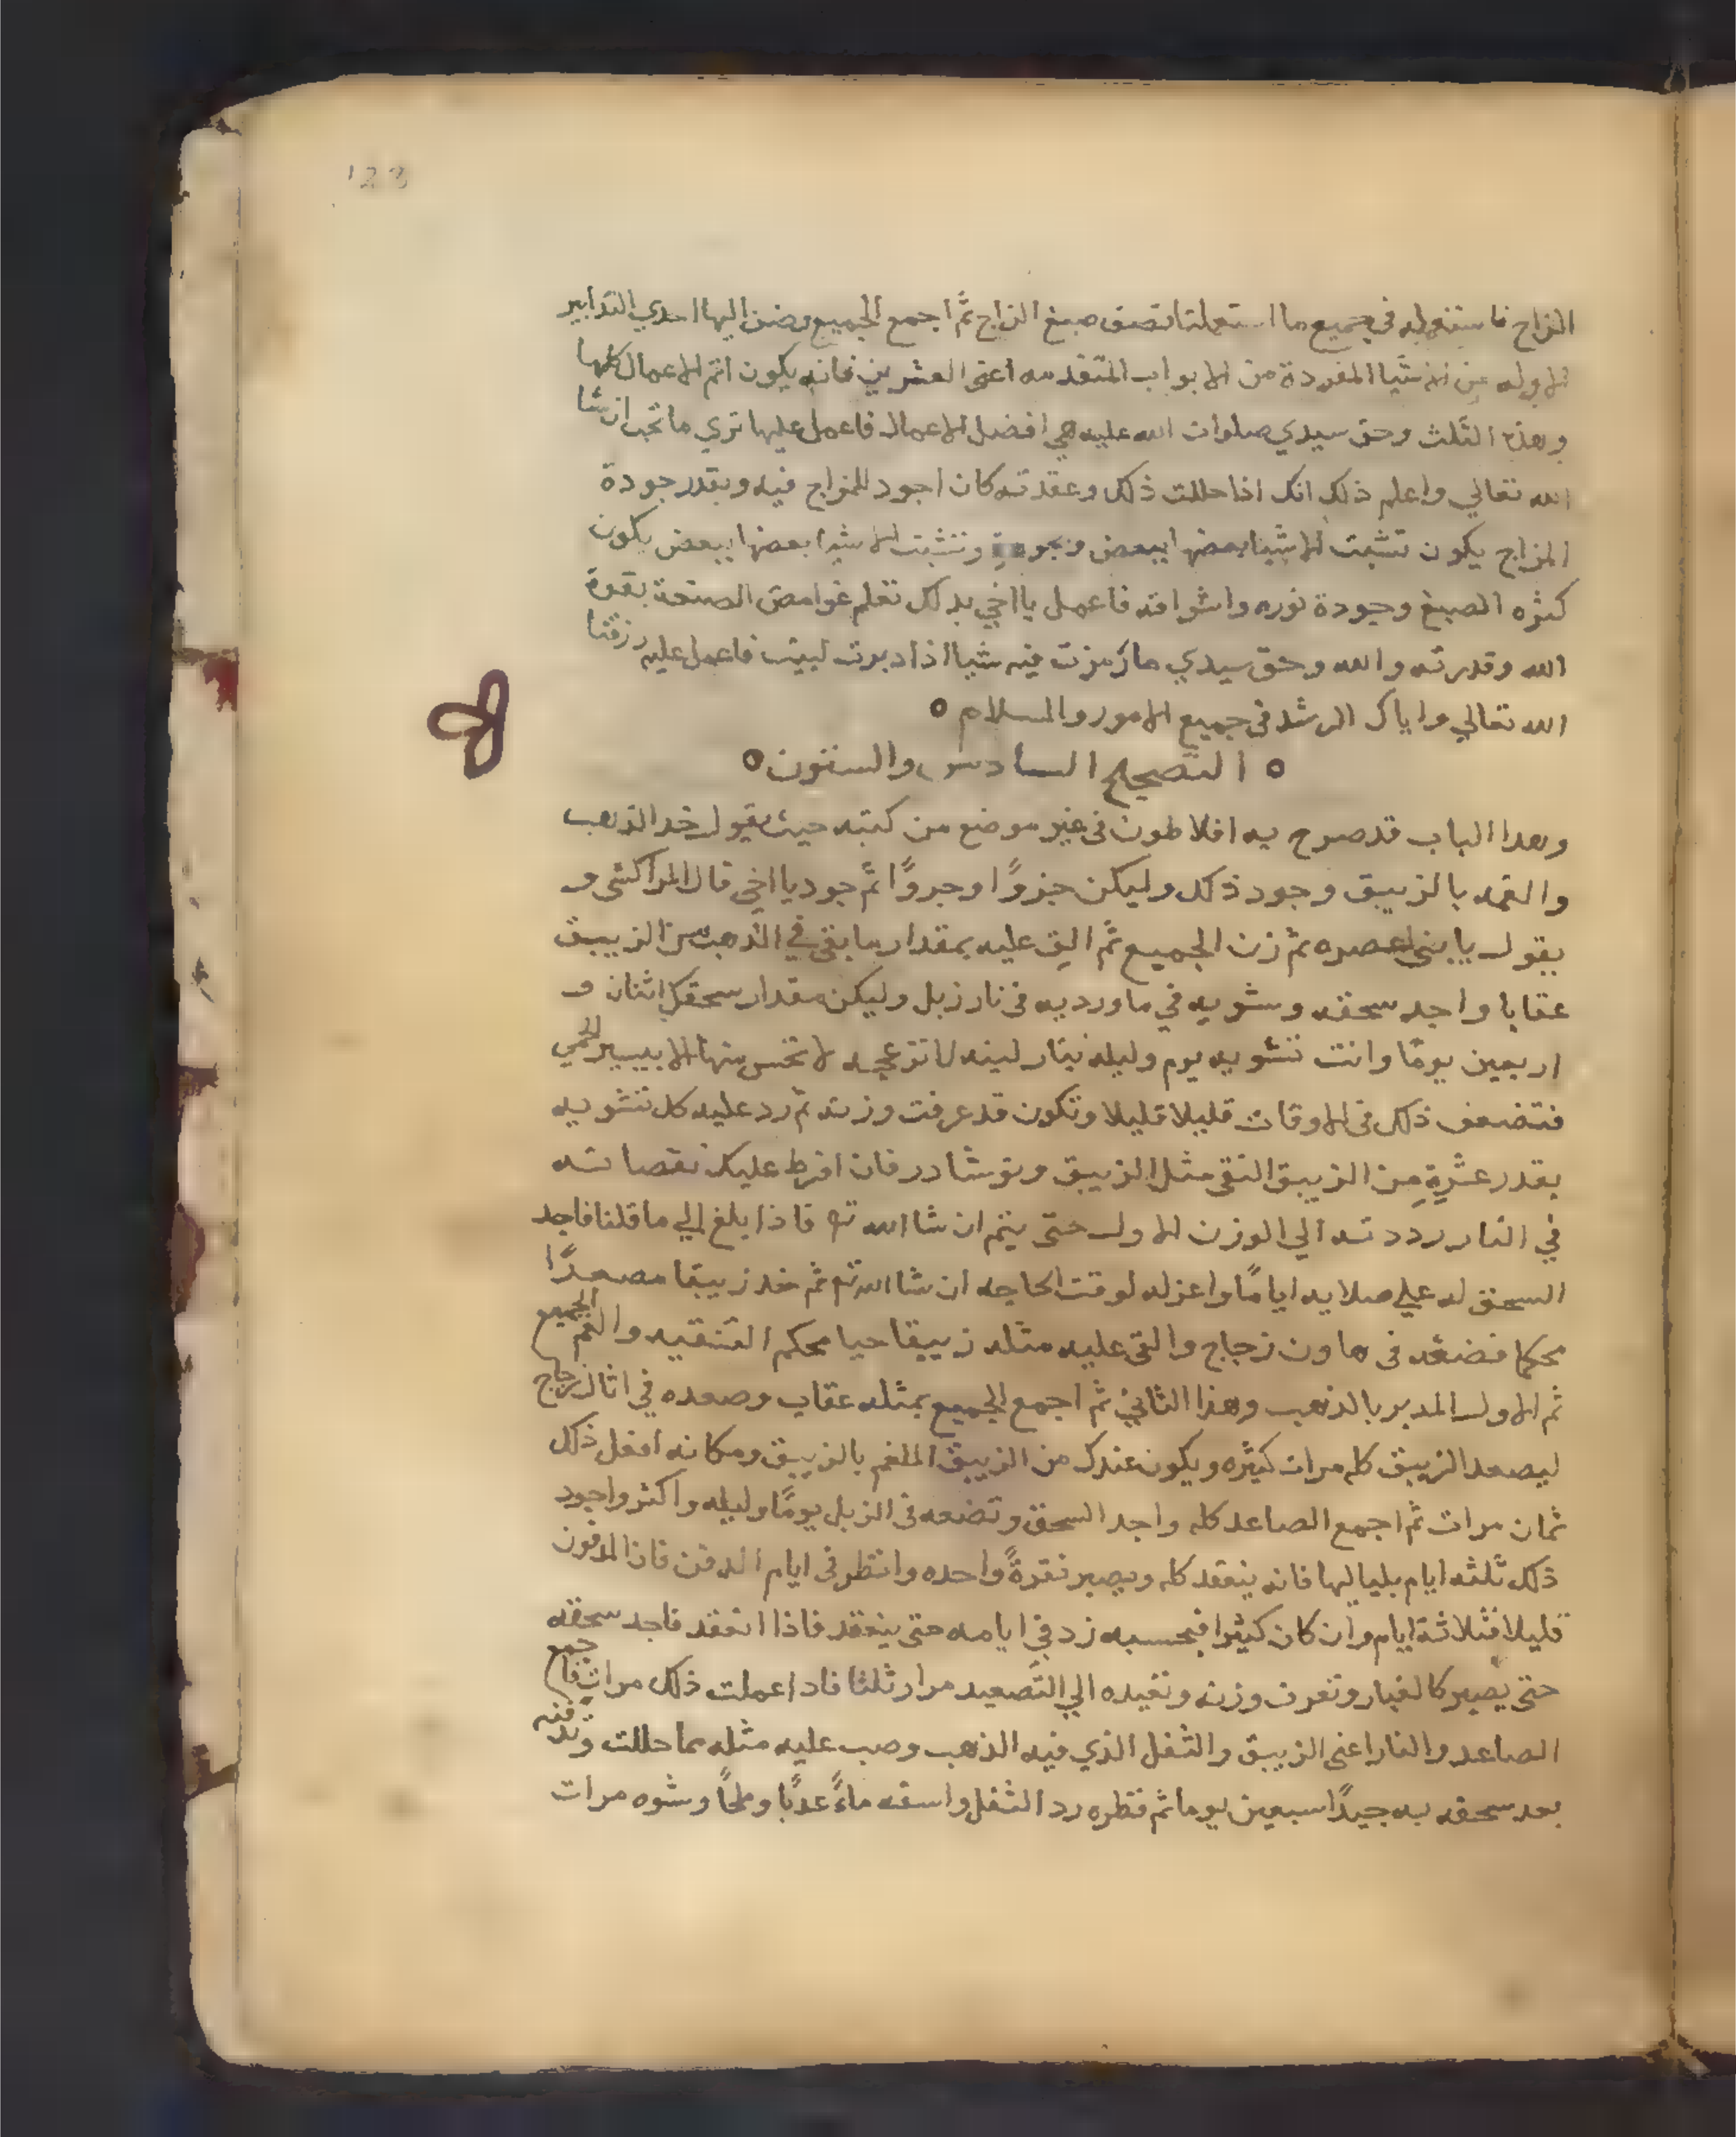 123
الزاج فاستعمله في جميع ما استعملنا نصف صبغ الزاج ثم اجمع الجميع وضف اليها احدي التدابير
الاوله من الاشيا المفردة من الابواب المتقدمه اعنى العشرين فانه يكون اتم الاعمال كلها
وهذه الثلث وحق سيدي صلوات الله عليه هي افضل الاعمال فاعمل عليها تري ما تحب ان شا
الله تعالي واعلم ذلك انك اذا حللت ذلك وعقدته كان اجود للمزاج فيه وبقدر جودة
المزاج يكون تشبت الاشيا بعضها ببعض وبجودة وتشبت الاشيا بعضها ببعض يكون
كثره الصبغ وجودة نوره واشراقه فاعمل يا اخي بذلك تعلم غوامض الصنعة بقوة
الله وقدرته والله وحق سيدي ما رمزت فيه شيا اذا دبرت لبيت فاعمل عليه رزقنا
الله تعالي واياك الرشد فى جميع الامور والسلام ه
ه التصحيح السادس والستون ه
وهدا الباب قد صرح به افلاطون فى غير موضع من كتبه حيث يقول خد الذهب
والغمه بالزيبق وجود ذلك وليكن جزوًا وجزوًا ثم جود يا اخي قال المراكشى و
يقول يا بنى اعصره ثم زن الجميع ثم الق عليه بمقدار ما بقى في الذهب من الزيبق
عقابا واجد سحقه وشويه في ماورديه فى نار زبل وليكن مقدار سحقك اثنان و
اربعين يومًا وانت تشويه يوم وليله بنار لينه لا تزعجه لا تحس منها الا بيسير الحمي
فتضعف ذلك فى الاوقات قليلا قليلا وتكون قد عرفت وزنه ثم رد عليه كل تشويه
بقدر عشرة من الزيبق النقى مثل الزيبق ونوشادر فان افرط عليك نقصانه
في النار رددته الي الوزن الاول حتى يتم ان شا الله ته فاذا بلغ الي ما قلنا فاجد
السحق له علي صلايه ايامًا واعزله لوقت الحاجه ان شا الله ته ثم خد زيبقا مصعدًا
محكما فضعه فى هاون زجاج والقى عليه مثله زيبقا حيا محكم التنقيه والغم الجميع
ثم الاول المدبر بالذهب وهذا الثاني ثم اجمع الجميع بمثله عقاب وصعده في اثال زجاج
ليصعد الزيبق كله مرات كثيره ويكون عندك من الزيبق الملغم بالزيبق ومكانه افعل ذلك
ثمان مرات ثم اجمع الصاعد كله واجد السحق وتضعه فى الزبل يومًا وليله واكثر واجود
ذلك ثلثه ايام بلياليها فانه ينعقد كله ويصير نقرةً واحده وانظر فى ايام الدفن فاذا المدفون
قليلا فثلاثة ايام وان كان كثيرا فبحسبه زد في ايامه حتى ينعقد فاذا انعقد فاجد سحقه
حتى يصير كالغبار وتعرف وزنه وتعيده الي التصعيد مرار ثلثا فاد اعملت ذلك مرات فاجمع
الصاعد والنار اعنى الزيبق والثفل الذي فيه الذهب وصب عليه مثله مما حللت وتدفنه
بعد سحقه به جيدًا سبعين يوما ثم قطره رد الثفل واسقه ماءً عدبًا وملحًا وشوه مرات